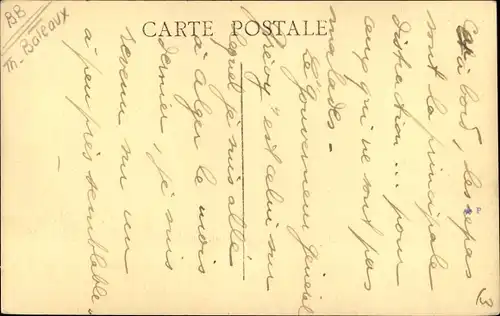 BB
Th - Bateaux
CARTE POSTALE
à bord, les repas
sont la principale
distraction... pour
ceux qui ne sont pas
malades -
Le "Gouverneur général
Grévy" est celui sur
lequel je suis allé
à Alger le mois
dernier, je suis
revenu sur un
à peu près semblable.
3